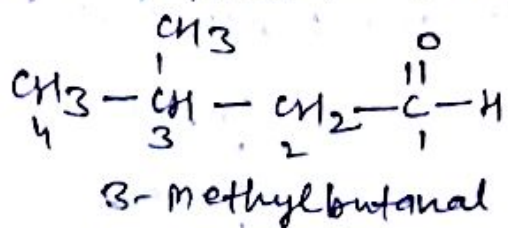 CH3
O
CH3 - CH - CH2 - C - H
4 3 2 1
3-methylbutanal